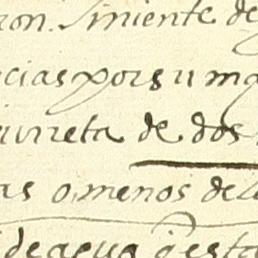 ron. siniente de
cias por su m
de dos
as o menos de la
de agua q esta